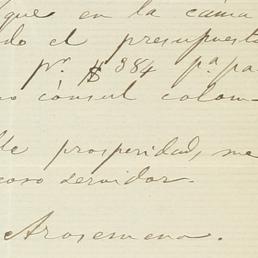 que en la cáma
do el presupuesto
pr. $ 384 pa. pa
o cónsul colom
de prosperidad, me
coso servidor.
Arosemena.